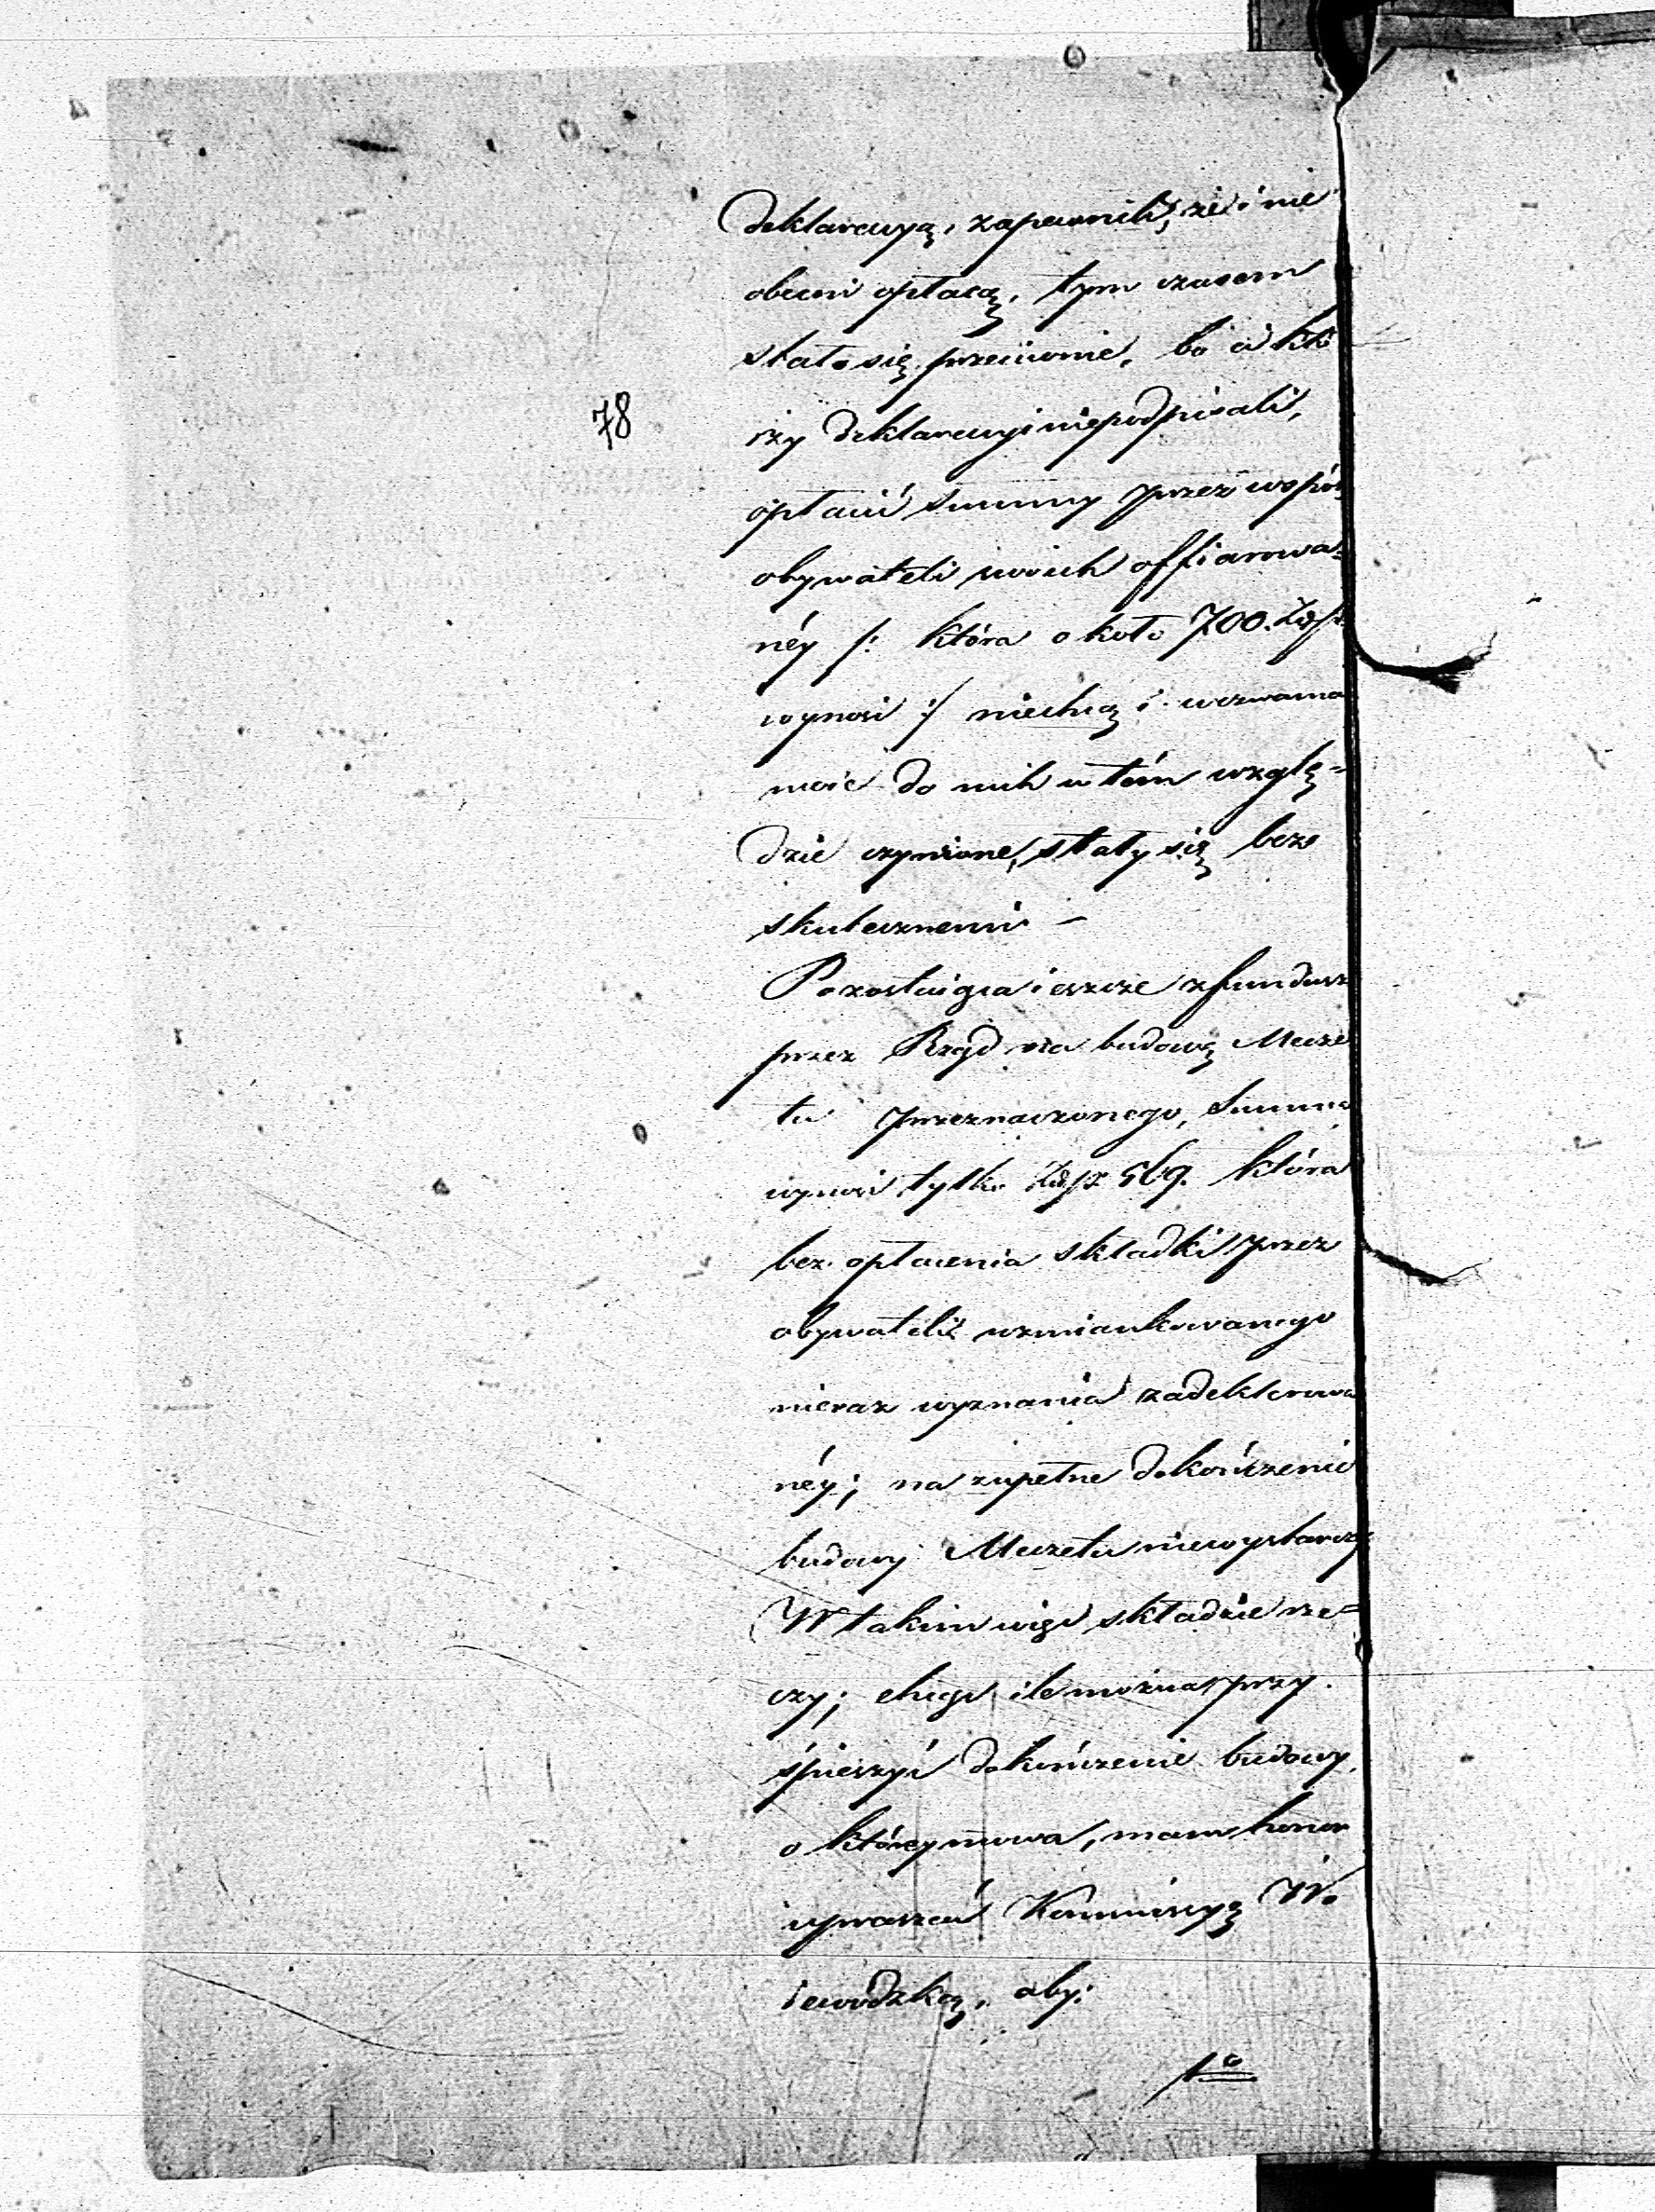 deklaracyą, zapewnili, że i nie
obecni opłacą, tym czasem
stało się przeciwnie, bo ci któ
78
rzy deklaracyi niepodpisali,
opłacić summy przez wspól
obywateli swoich offiarowa=
néy /: która około 700. Złp.
wynosi :/ niechcą i wezwania
moie do nich w tém wzglę=
dzie czynione, stały się bez
skutecznemi –
Pozostaiąca ieszcze z fundusz
przez Rząd na budowę Mecze
tu przeznaczonego, Summa
wynosi tylko Złp 569. która
bez opłacenia składki przez
obywateli wzmiankowanego
nieraz wyznania zadeklarowa
néy; na zupełne dokończenie
budowy Meczetu niewystarczy
W takim więc składzie rze=
czy; chcąc ile można przy.
śpieszyć dokończenie budowy,
o któréy mowa, mam honor
upraszać Kommissyą Wo
iewódzką, aby:
1º